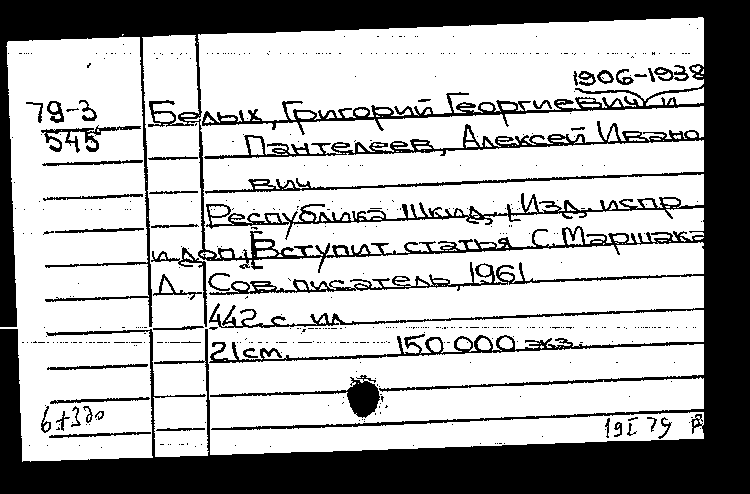 1906-1938
79-3 Белых, Григорий Георгиевич и
545 Пантелеев, Алексей Ивано
вич
Республика Шкид, Изд. испр.
и доп. [Вступит. статья С. Маршака
Л., Сов. писатель, 1961
442 с. ил.
21 см. 150 000 экз.
19 I 79